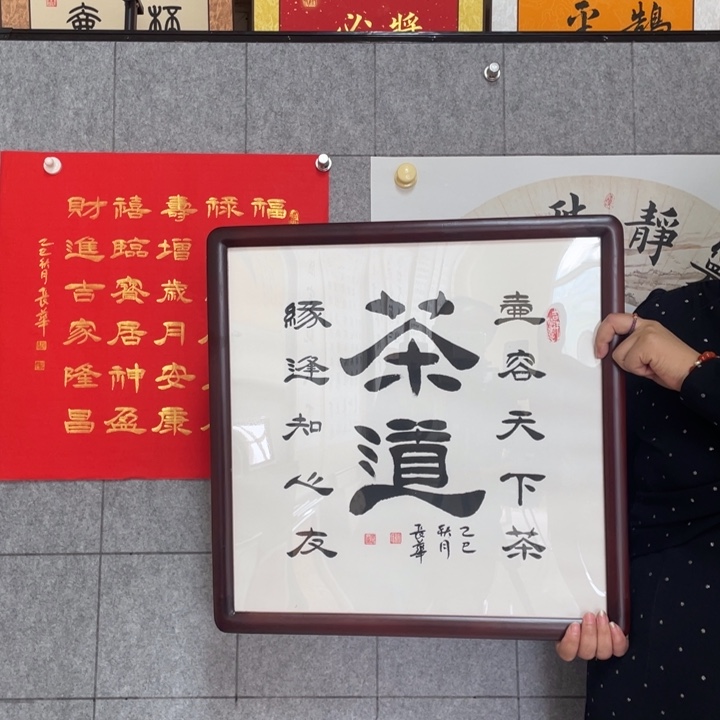 壺容天下茶
茶道
緣逢知心友
乙巳
秋月
長華
福
禄
壽增歲月安康
禧臨寶居神盈
財進吉家隆昌
乙巳秋月長華
靜